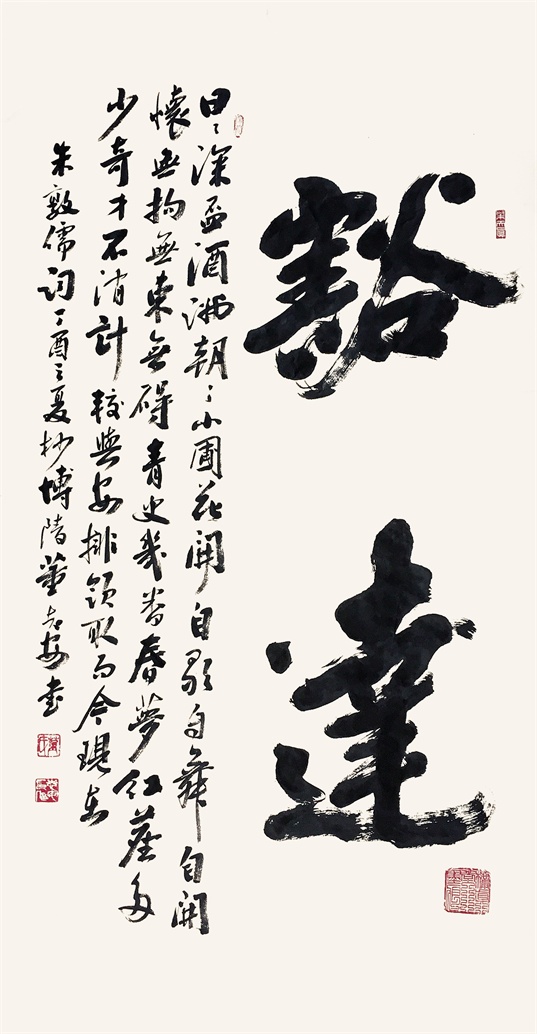 豁達
日々深盃酒滿朝々小圃花開自歌自舞自開
懷無拘無束無碍青史幾番春夢紅塵多
少奇才不消計較與安排領取而今現在
朱敦儒詞丁酉之夏杪博陵董安書